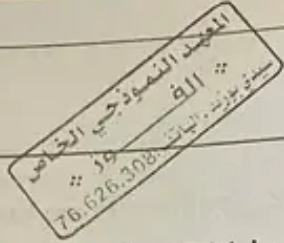 المعهد النموذجي الخاص
الفوز
سيدي بوزيد. الهاتف: 76.626.308